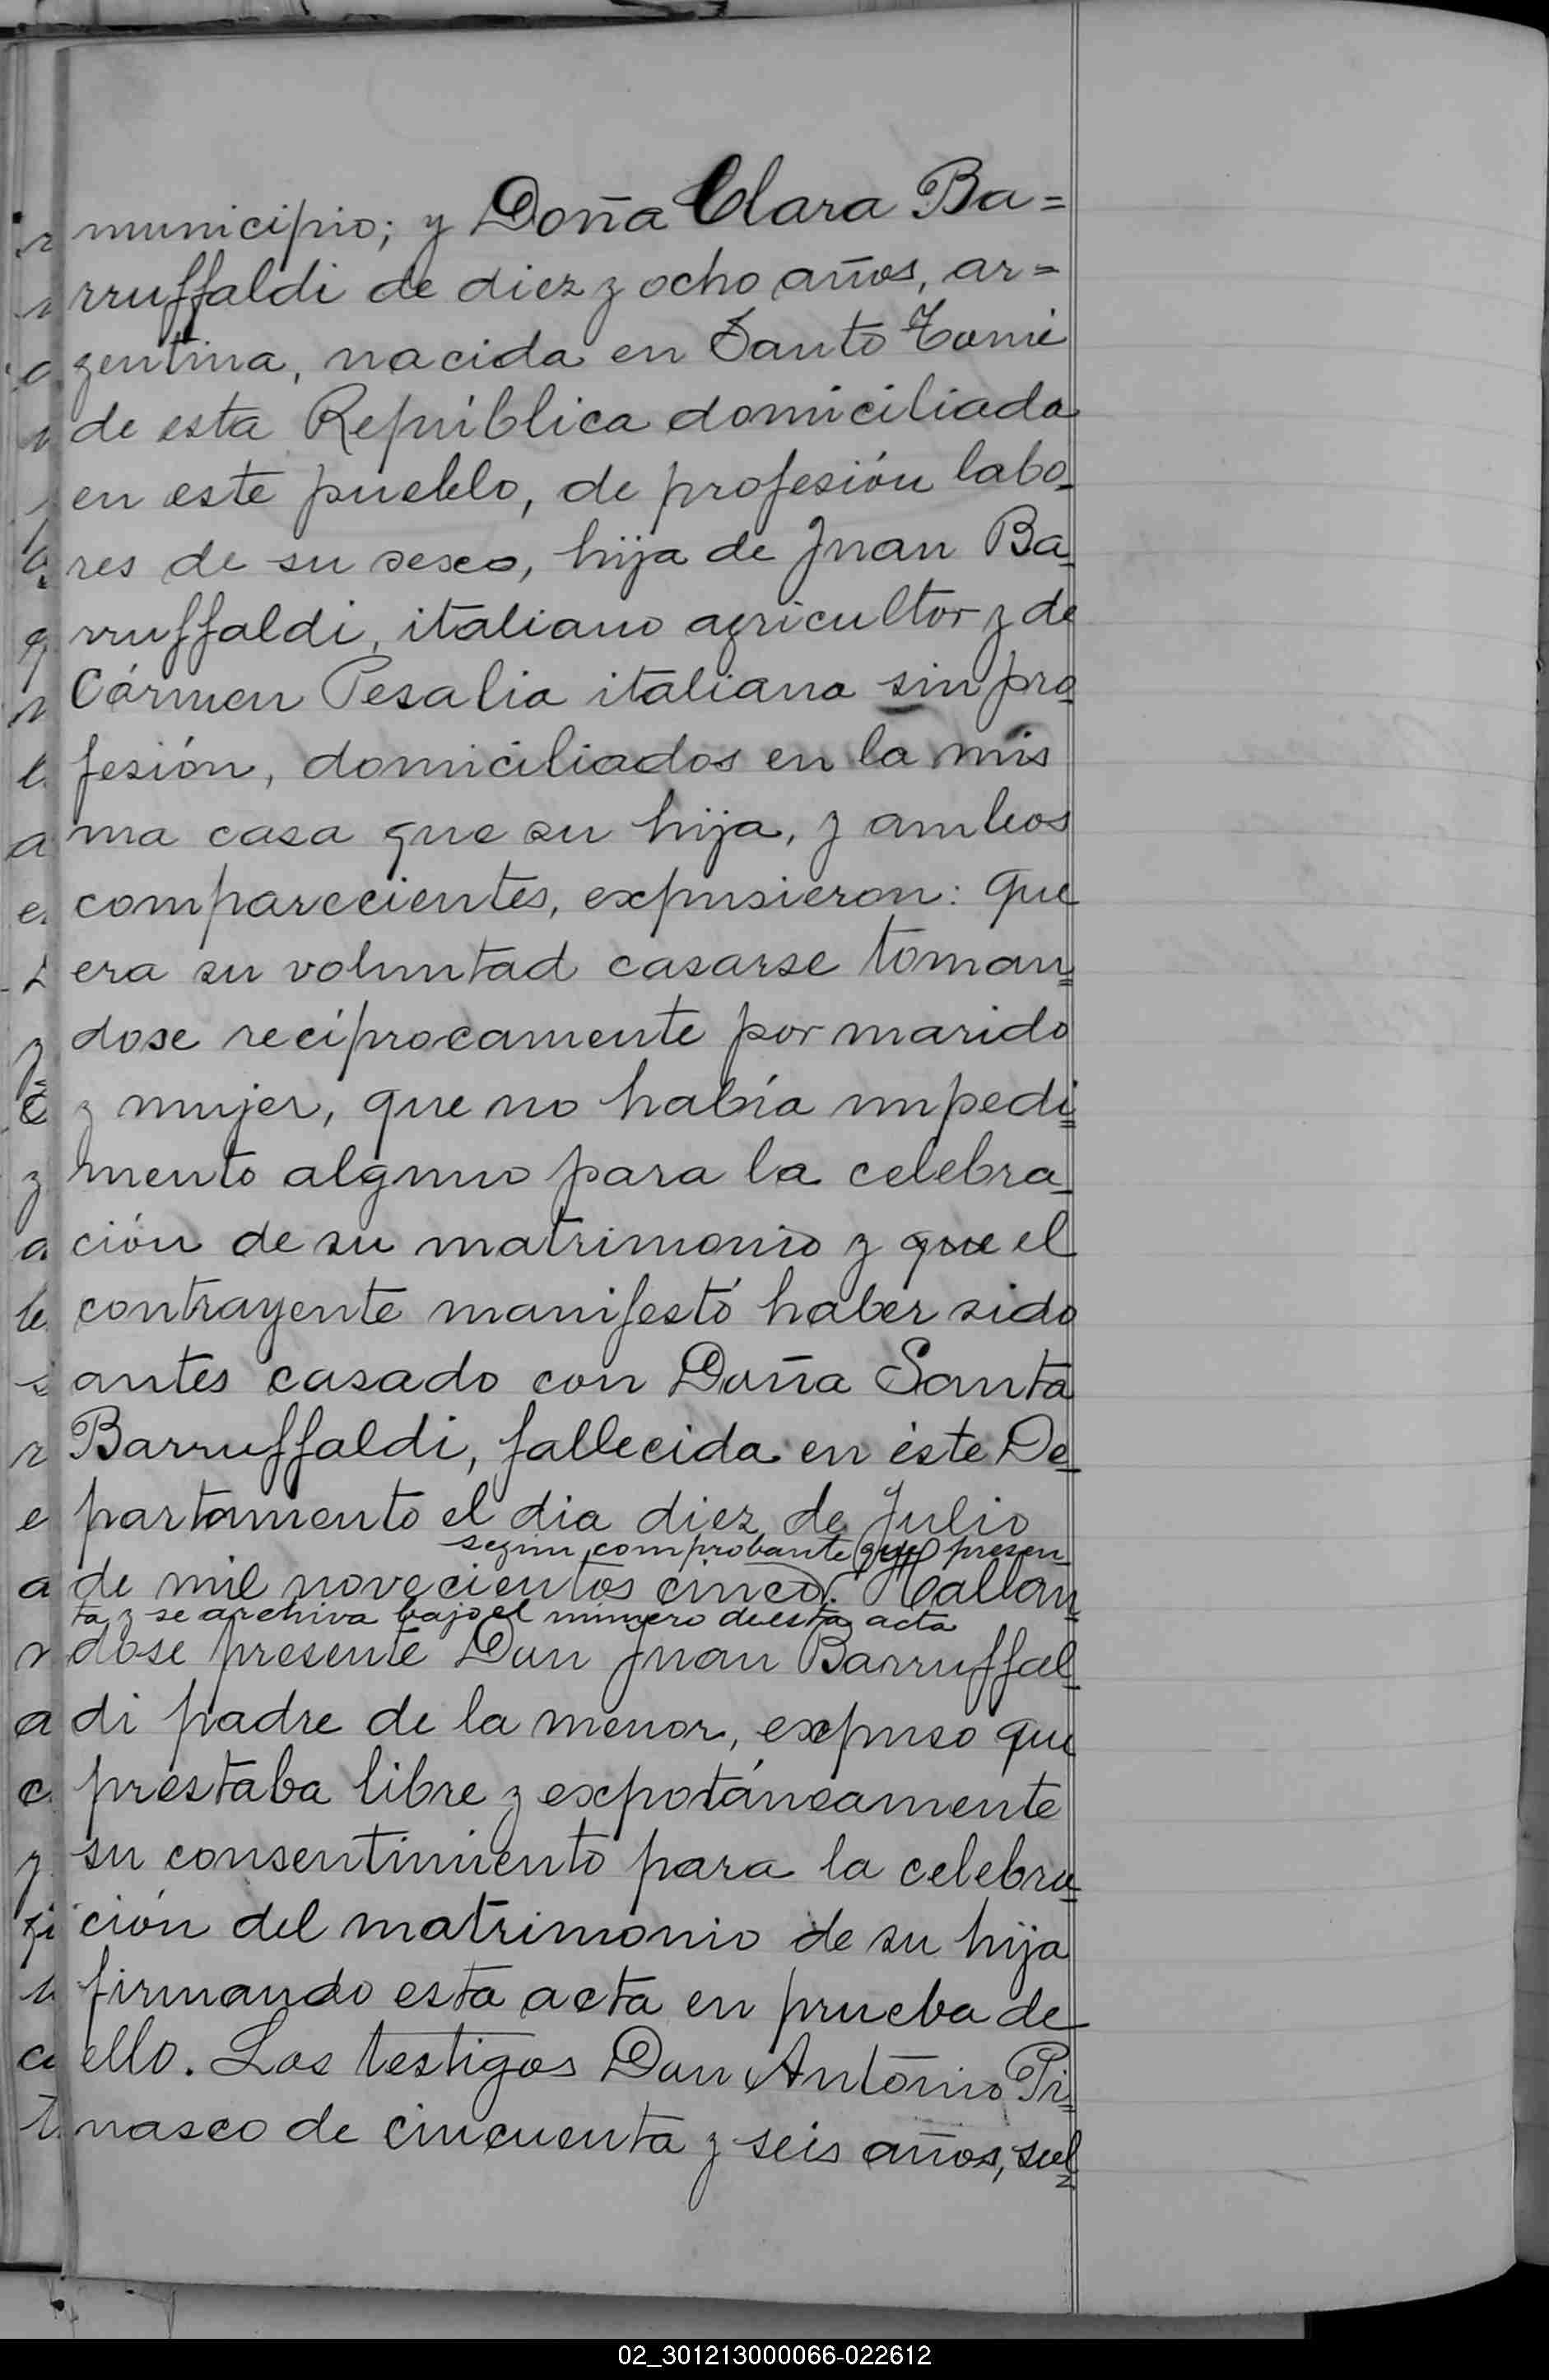 municipio; y Doña Clara Ba=
rruffaldi de diez y ocho años, ar=
gentina, nacida en Santo Tomé
de esta República domiciliada
en este pueblo, de profesión labo-
res de su sexo, hija de Juan Ba-
rruffaldi, italiano agricultor y de
Cármen Pesalia italiana sin pro-
fesión, domiciliados en la mis
ma casa que su hija, y ambos
comparecientes, expusieron: que
era su voluntad casarse toman=
dose recíprocamente por marido
y mujer, que no había impedi=
mento alguno para la celebra-
ción de su matrimonio y que el
contrayente manifestó haber sido
antes casado con Doña Santa
Barruffaldi, fallecida en éste De-
partamento el dia diez de Julio
segun comprobante que presen-
de mil novecientos cinco. Hallan-
ta y se archiva bajo el número de esta acta
dose presente Don Juan Barruffal-
di padre de la menor, expuso que
prestaba libre y expotáneamente
su consentimiento para la celebra-
ción del matrimonio de su hija
firmando esta acta en prueba de
ello. Los testigos Don Antonio Pi=
nasco de cincuenta y seis años, sol=
02_301213000066-022612